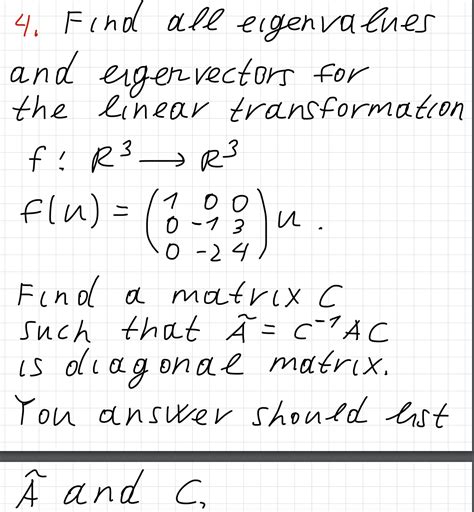 4. Find all eigenvalues
and eigenvectors for
the linear transformation
f : R³ → R³
f(u) = (1 0 0
0 -1 3
0 -2 4) u .
Find a matrix C
such that Ã = C⁻¹AC
is diagonal matrix.
You answer should list
Ã and C,